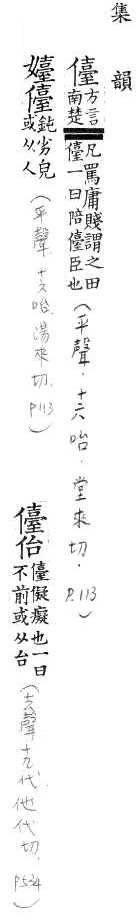 集韻
儓方言南楚凡罵庸賤謂之田儓一曰陪儓臣也(平聲.十六咍.堂來切.P.113)
嬯儓鈍劣皃或从人(平聲.十六咍.湯來切.P113)
儓佁儓儗癡也一曰不前或从台(去聲十九代.他代切.P534)